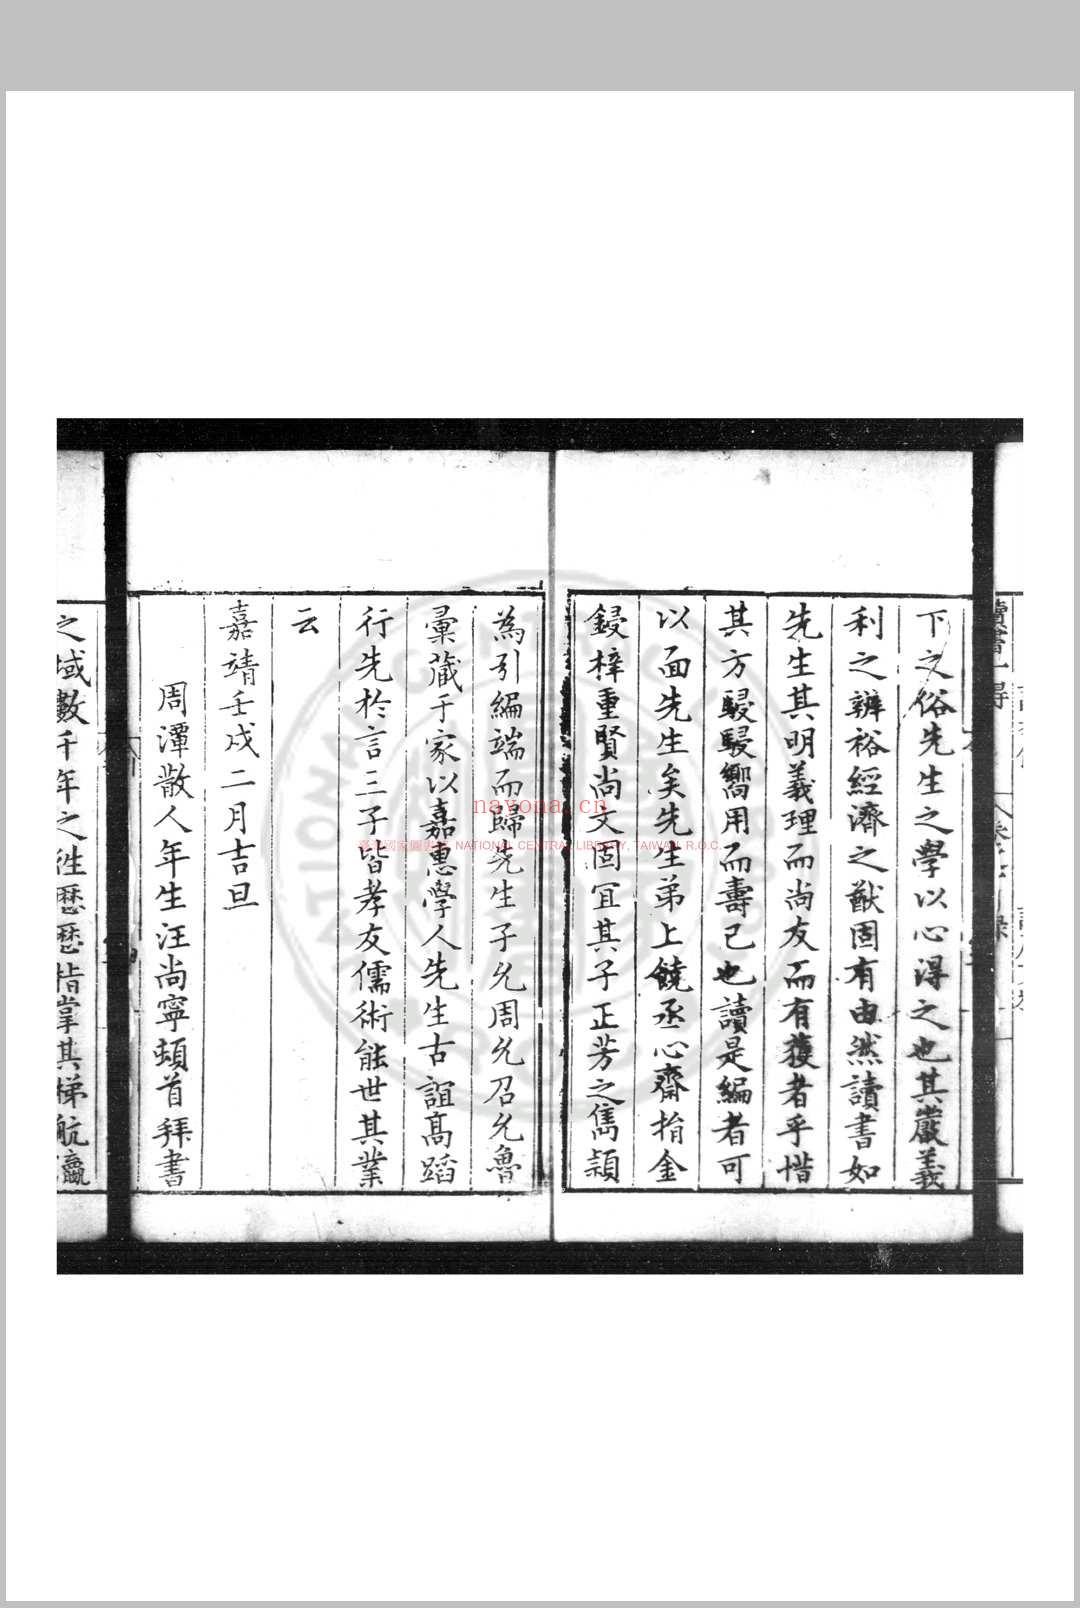 下之俗先生之學以心得之也其嚴義
利之辨裕經濟之猷固有由然讀書如
先生其明義理而尚友而有獲者乎惜
其方駸駸嚮用而壽已也讀是編者可
以面先生矣先生弟上饒丞心齋捐金
鋟梓重賢尚文固冝其子正芳之雋頴
為引編端而歸先生子允周允召允魯
彚藏于家以嘉惠學人先生古誼髙蹈
行先於言三子皆孝友儒術能世其業
云
嘉靖壬戌二月吉旦
周潭散人年生汪尚寧頓首拜書
之域數千年之徃歷歷指掌其梯航瀛
讀書一得
nayona.cn
臺灣國家圖書館 NATIONAL CENTRAL LIBRARY, TAIWAN, R.O.C.